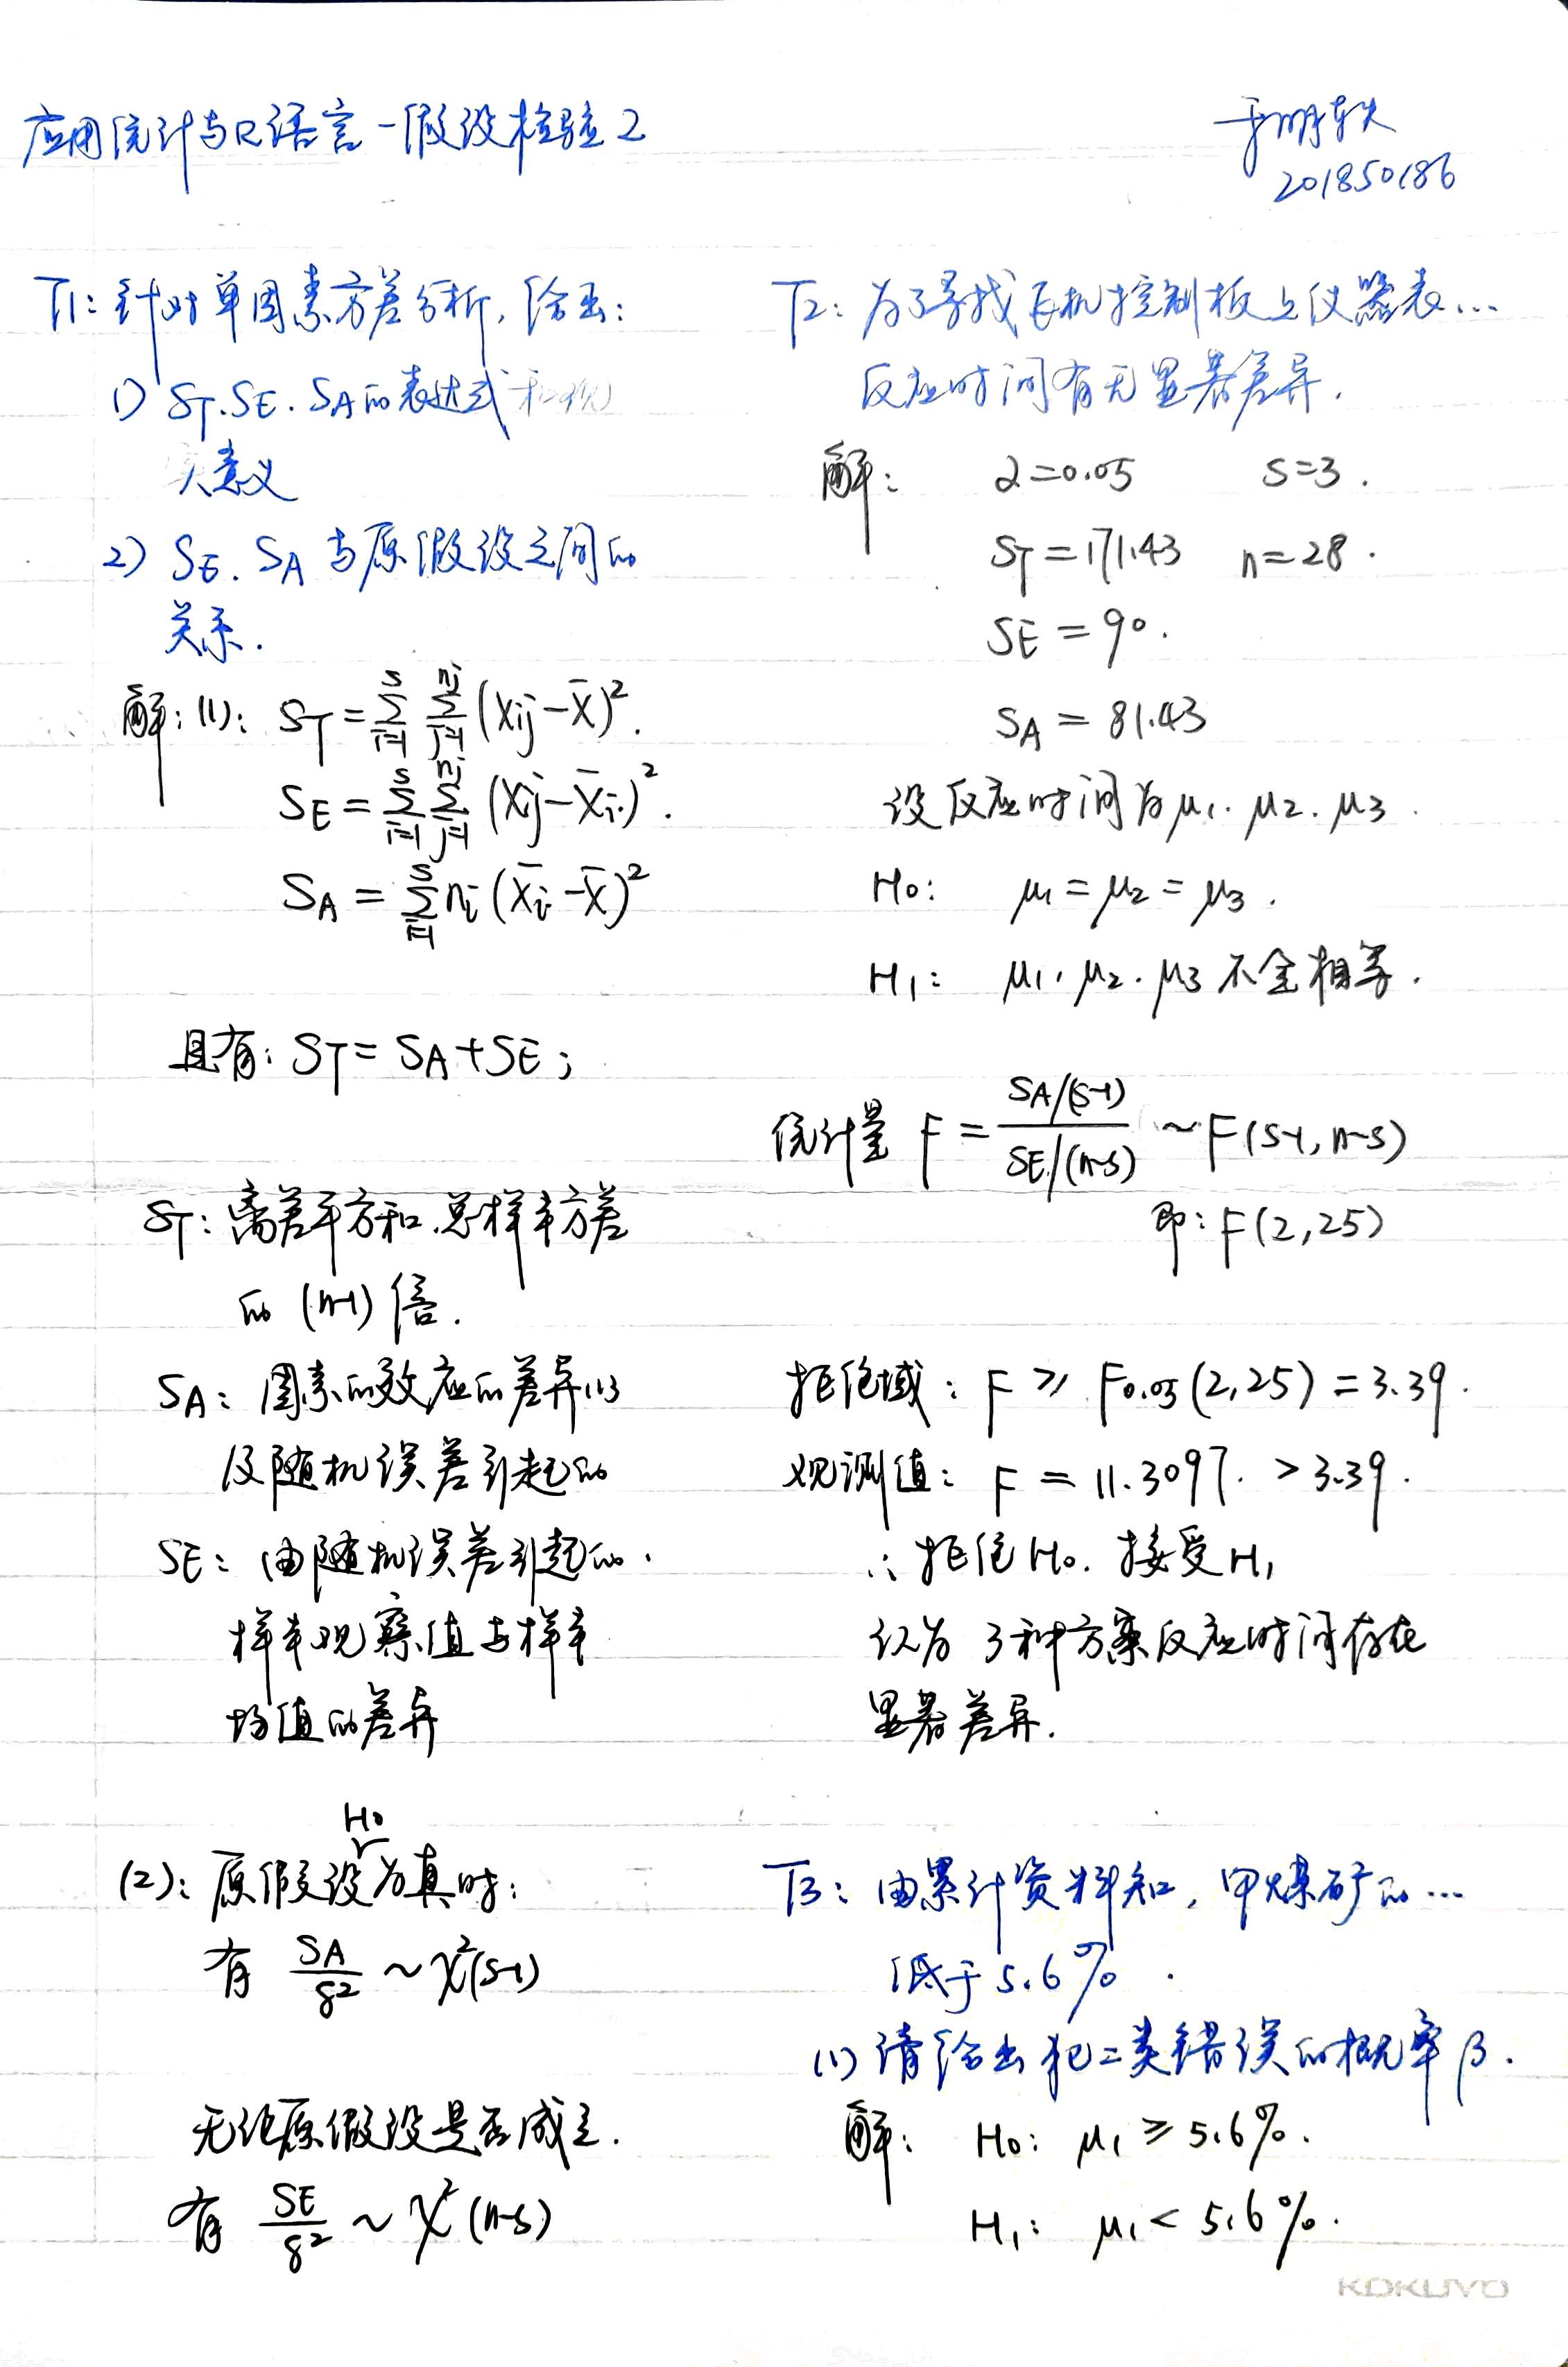 应用统计与R语言-假设检验2
于明轶
201850186
T1: 针对单因素方差分析,给出:
1) ST.SE.SA的表达式和现
实意义
2) SE.SA与原假设之间的
关系.
解: (1): ST = Σ(i=1→s) Σ(j=1→nj) (Xij - X̄)².
SE = Σ(i=1→s) Σ(j=1→nj) (Xij - X̄i.)².
SA = Σ(i=1→s) ni (X̄i - X̄)²
且有: ST = SA + SE;
ST: 离差平方和.总样本方差
的 (n-1) 倍.
SA: 因素的效应的差异以
及随机误差引起的
SE: 由随机误差引起的.
样本观察值与样本
均值的差异
H0
(2): 原假设为真时:
有 SA/δ² ~ χ²(s-1)
无论原假设是否成立.
有 SE/δ² ~ χ²(n-s)
T2: 为了寻找飞机控制板上仪器表...
反应时间有无显著差异.
解: α=0.05 S=3.
ST = 171.43 n=28.
SE = 90.
SA = 81.43
设反应时间为μ1. μ2. μ3.
H0: μ1 = μ2 = μ3.
H1: μ1. μ2. μ3 不全相等.
统计量 F = SA/(s-1) / SE/(n-s) ~ F(s-1, n-s)
即: F(2,25)
拒绝域: F ≥ F0.05(2,25) = 3.39.
观测值: F = 11.3097. > 3.39.
∴ 拒绝H0. 接受H1
认为 3种方案反应时间存在
显著差异.
T3: 由累计资料知, 甲煤矿的...
低于5.6%.
(1) 请给出犯二类错误的概率β.
解: H0: μ1 ≥ 5.6%.
H1: μ1 < 5.6%.
KOKUYO